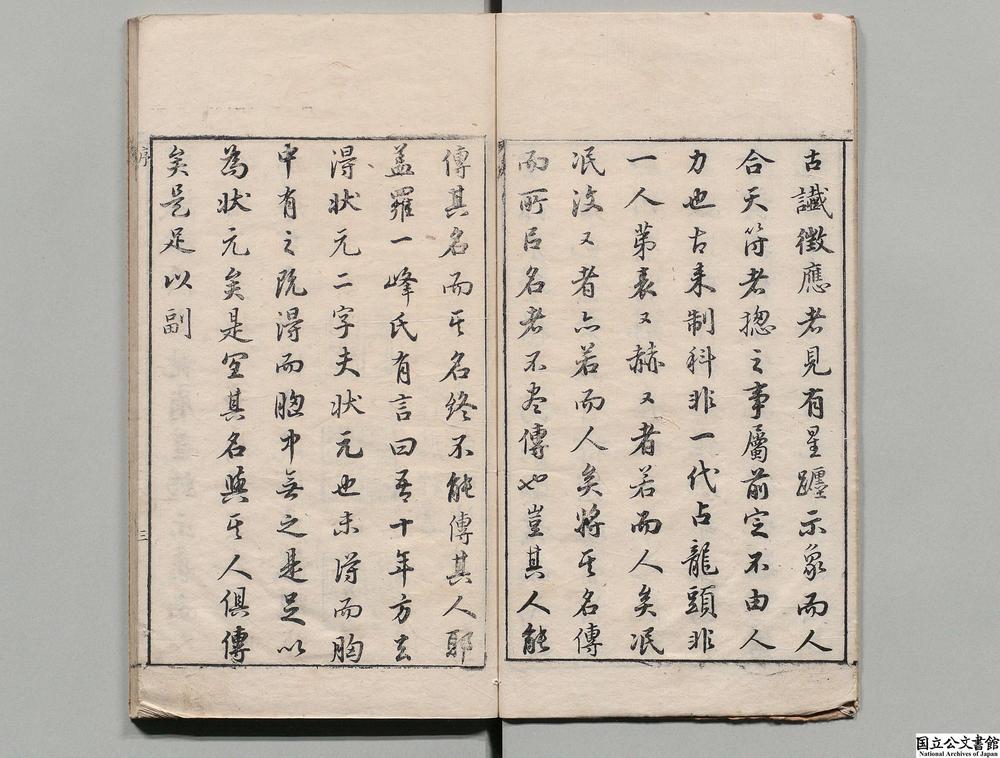 古讖徵應者見有星躔示象而人
合天符者揔之事屬前定不由人
力也古来制科非一代占龍頭非
一人第表々赫々者若而人矣泯
泯没々者亦若而人矣將其名傳
而所以名者不尽傳也豈其人能
傳其名而其名終不能傳其人耶
盖羅一峰氏有言曰吾十年方去
得状元二字夫状元也未得而胸
中有之既得而胸中無之是足以
為状元矣是宜其名與其人俱傳
矣是足以副
序
三
国立公文書館
National Archives of Japan